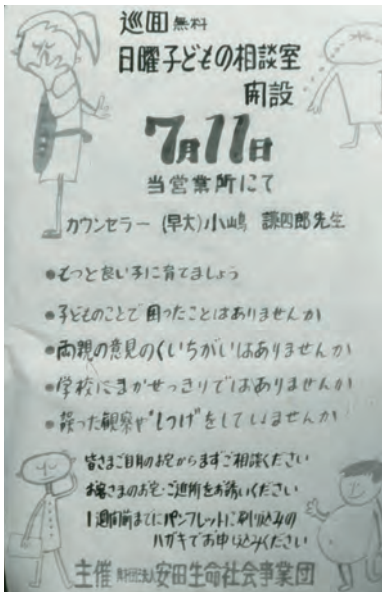 巡回無料
日曜子どもの相談室
開設
7月11日
当営業所にて
カウンセラー (早大)小嶋 謙四郎先生
●もっと良い子に育てましょう
●子どものことで困ったことはありませんか
●両親の意見のくいちがいはありませんか
●学校にまかせっきりではありませんか
●誤った観察や"しつけ"をしていませんか
皆さまご自身のお宅からまずご相談ください
お客さまのお宅・ご近所をお誘いください
1週間前までにパンフレットに刷り込みの
ハガキでお申し込みください
主催 財団法人 安田生命社会事業団